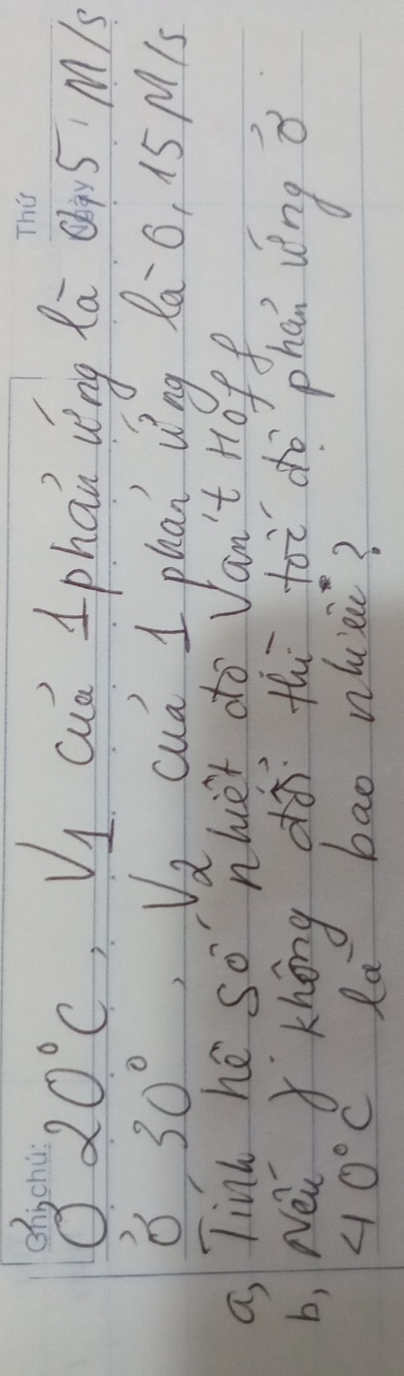 Ghi chú:
Thứ
Ngày
Ở 20°C, V1 của 1 phản ứng là 0,5 M/s
Ở 30°, V2 của 1 phản ứng là 0,15 M/s
a, Tính hệ số nhiệt độ Van't Hoff
b, Nếu γ không đổi thì tốc độ phản ứng ở
40°C là bao nhiêu?